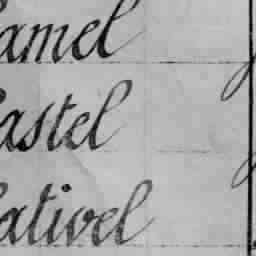 amel
astel
ativel